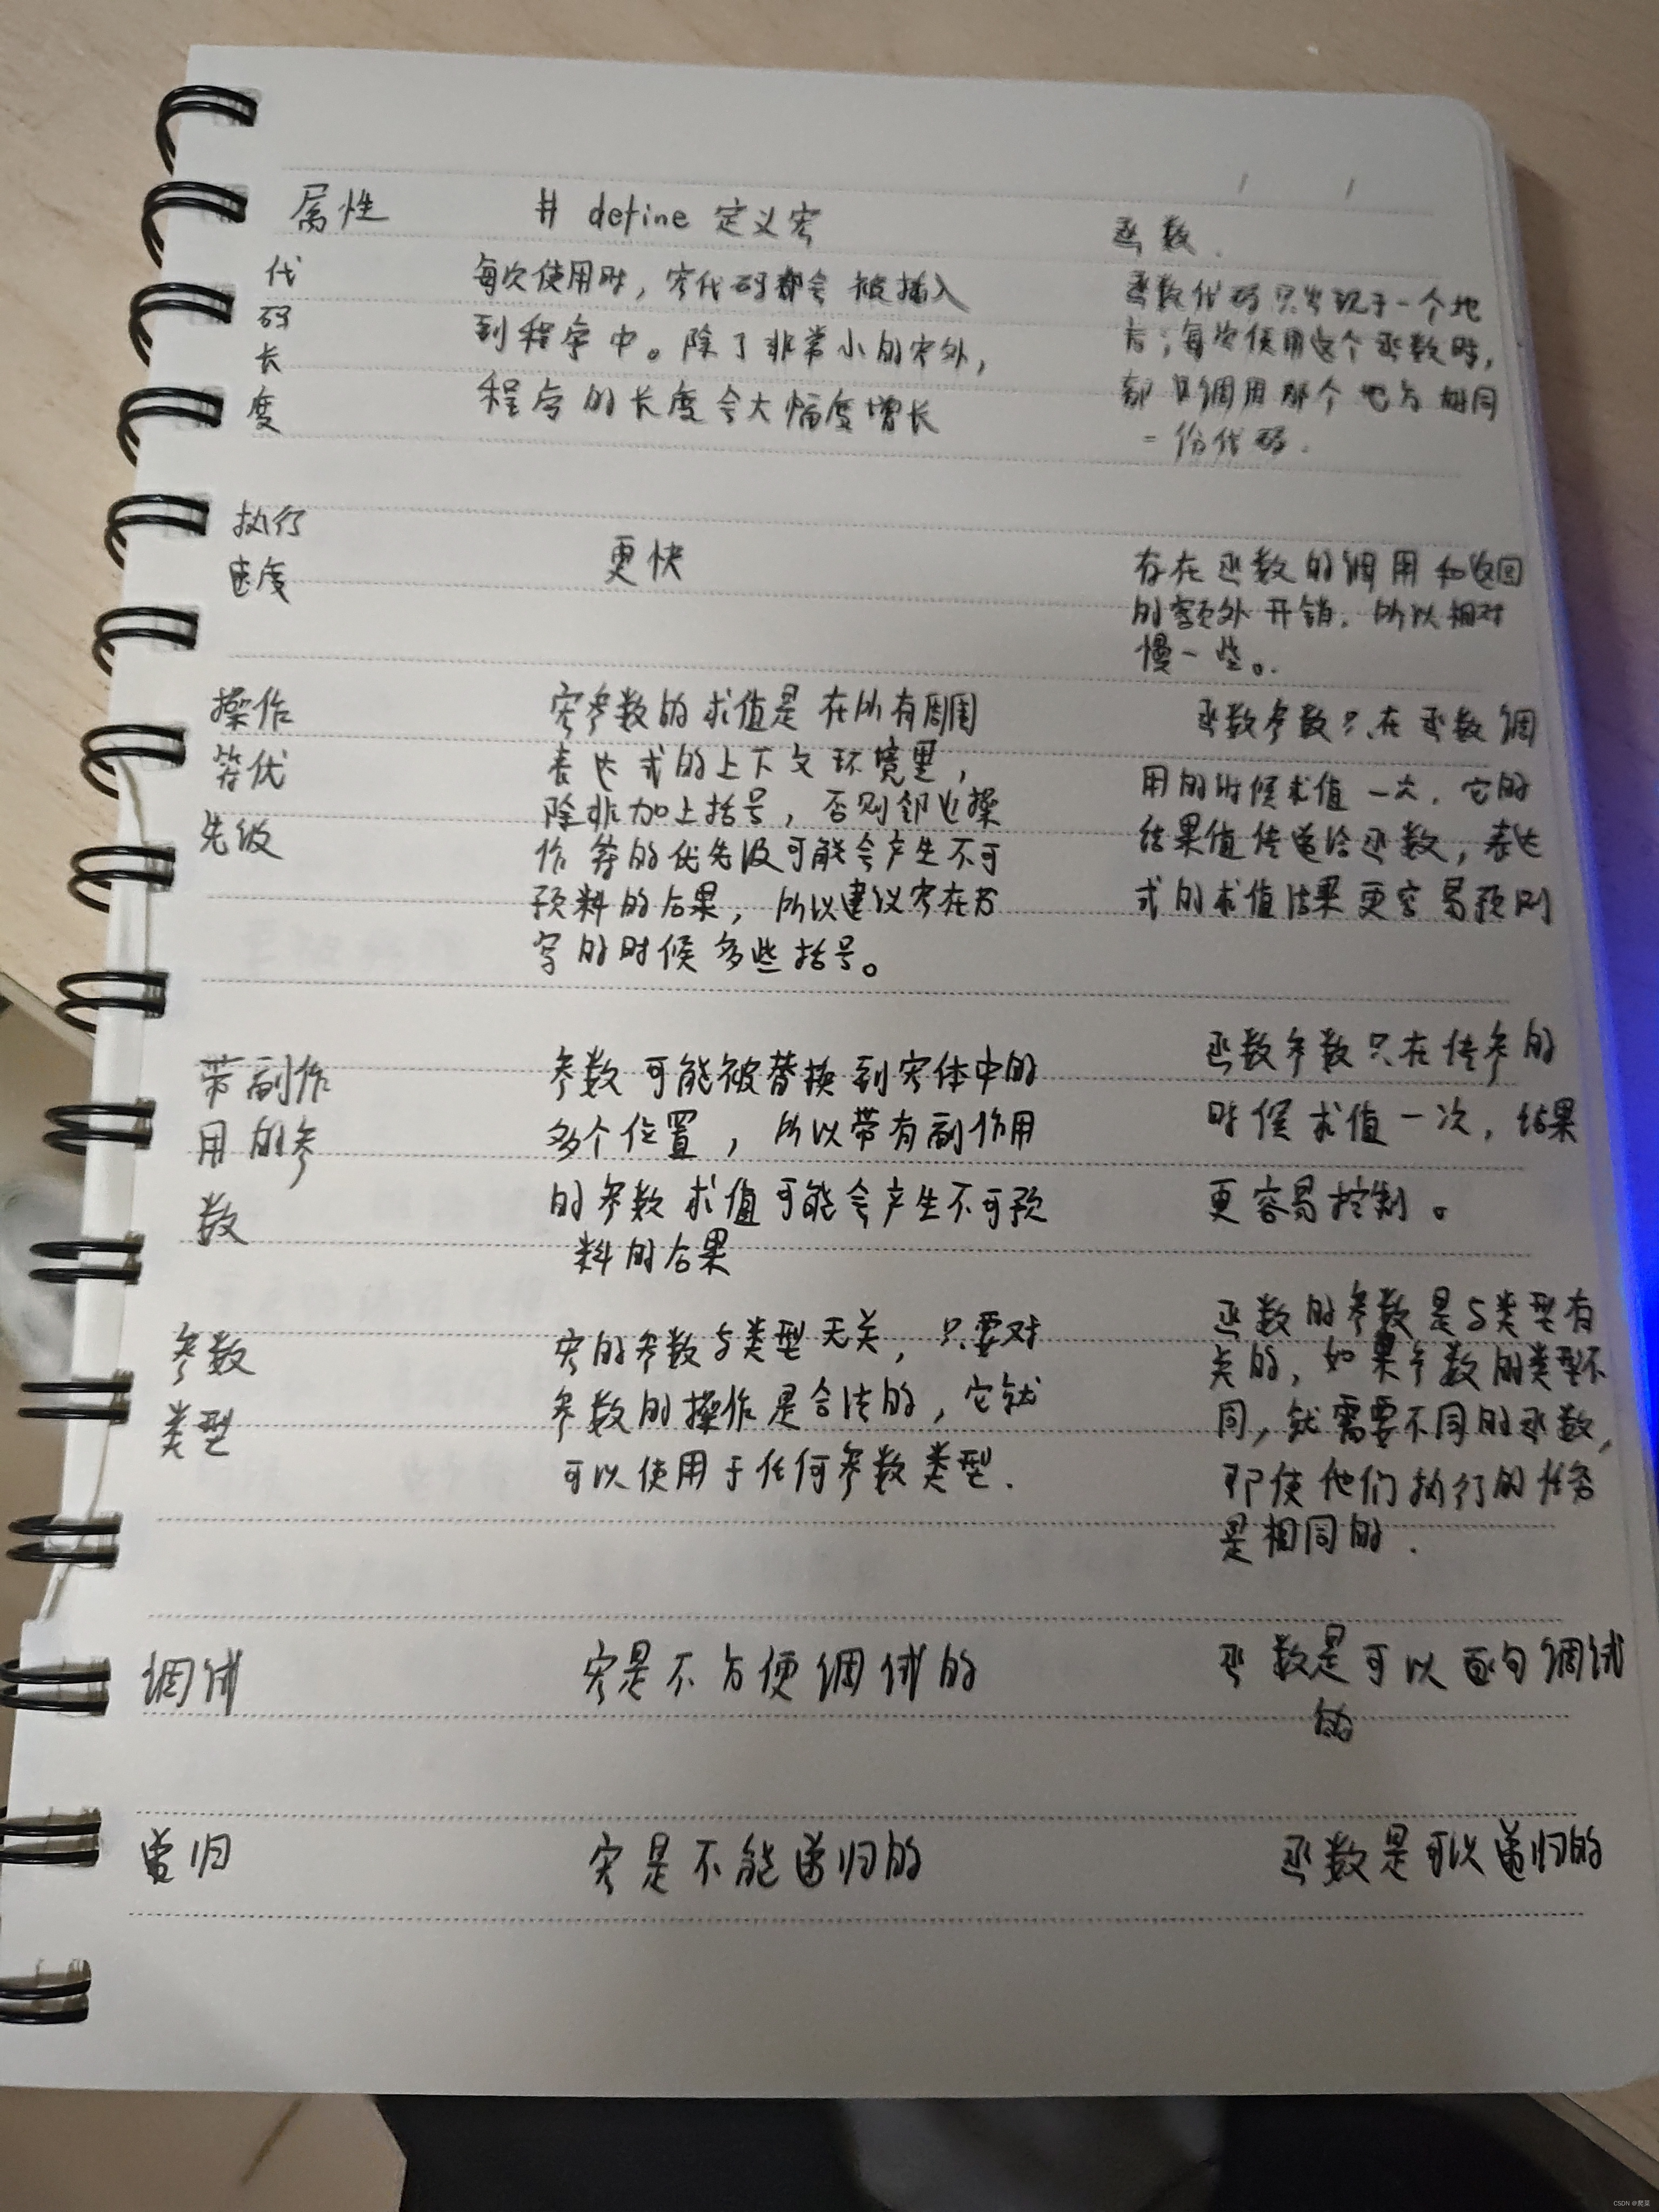 属性
# define 定义宏
函数.
代
码
长
度
每次使用时，宏代码都会被插入
到程序中。除了非常小的宏外，
程序的长度会大幅度增长
函数代码只出现于一个地
方；每次使用这个函数时，
都只调用那个地方相同
一份代码.
执行
速度
更快
存在函数的调用和返回
的额外开销，所以相对
慢一些。
操作
符优
先级
宏参数的求值是在所有周围
表达式的上下文环境里，
除非加上括号，否则邻近操
作符的优先级可能会产生不可
预料的后果，所以建议宏在书
写的时候多些括号。
函数参数只在函数调
用的时候求值一次，它的
结果值传递给函数，表达
式的求值结果更容易预测
带副作
用的参
数
参数可能被替换到宏体中的
多个位置，所以带有副作用
的参数求值可能会产生不可预
料的后果
函数参数只在传参的
时候求值一次，结果
更容易控制。
参数
类型
宏的参数与类型无关，只要对
参数的操作是合法的，它就
可以使用于任何参数类型.
函数的参数是与类型有
关的，如果参数的类型不
同，就需要不同的函数，
即使他们执行的任务
是相同的.
调试
宏是不方便调试的
函数是可以逐句调试
的
递归
宏是不能递归的
函数是可以递归的
CSDN @爬菜